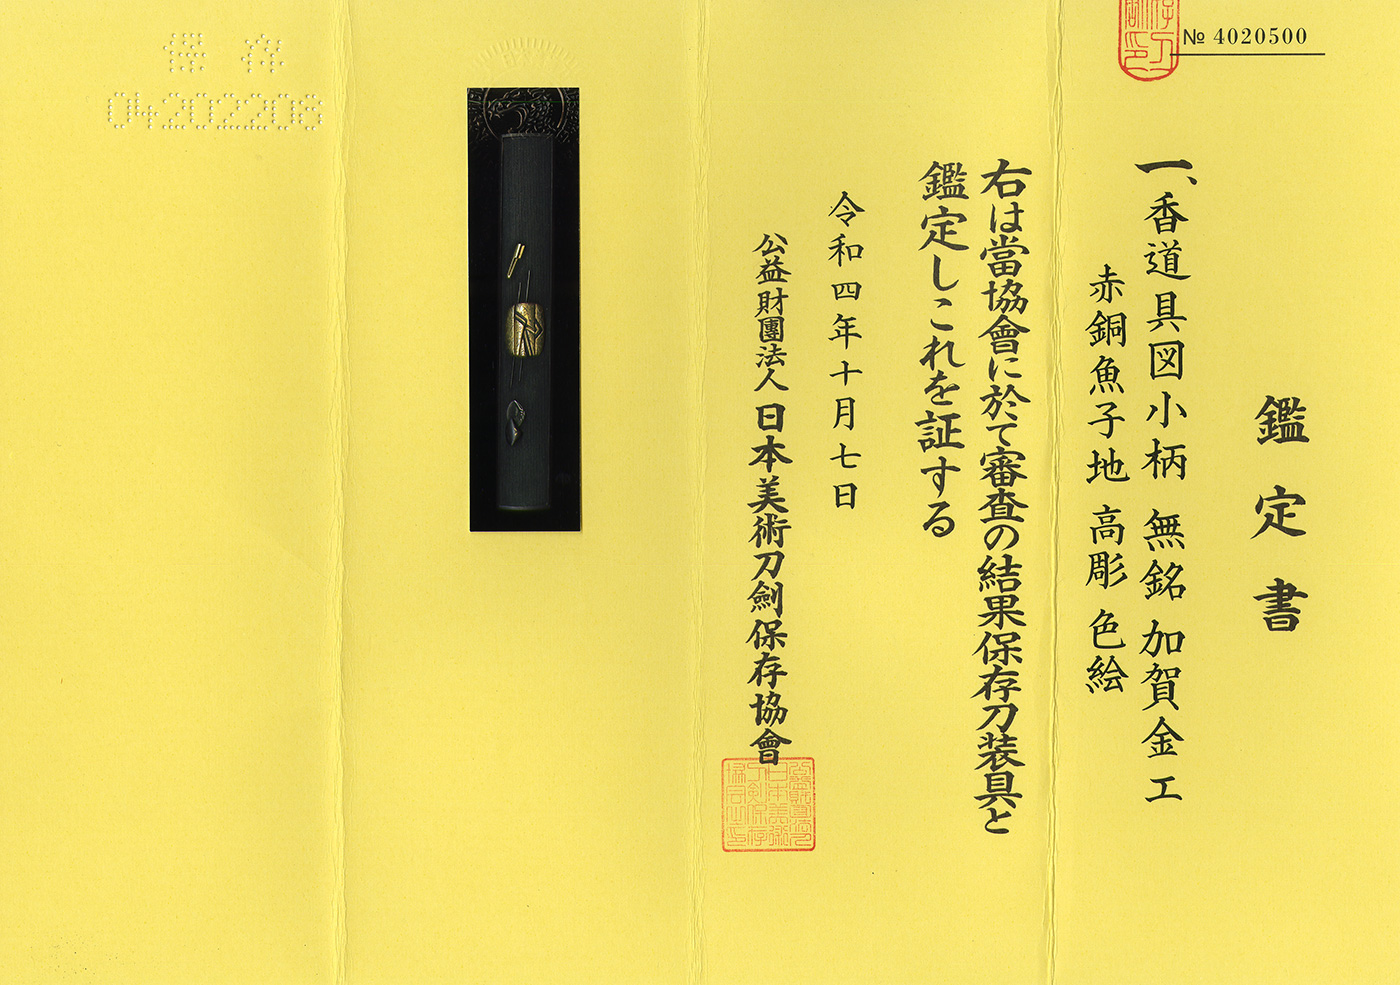 № 4020500
鑑定書
一、香道具図小柄 無銘 加賀金工
赤銅魚子地 高彫 色絵
右は當協會に於て審査の結果保存刀装具と
鑑定しこれを証する
令和四年十月七日
公益財團法人 日本美術刀劍保存協會
保存
04202208